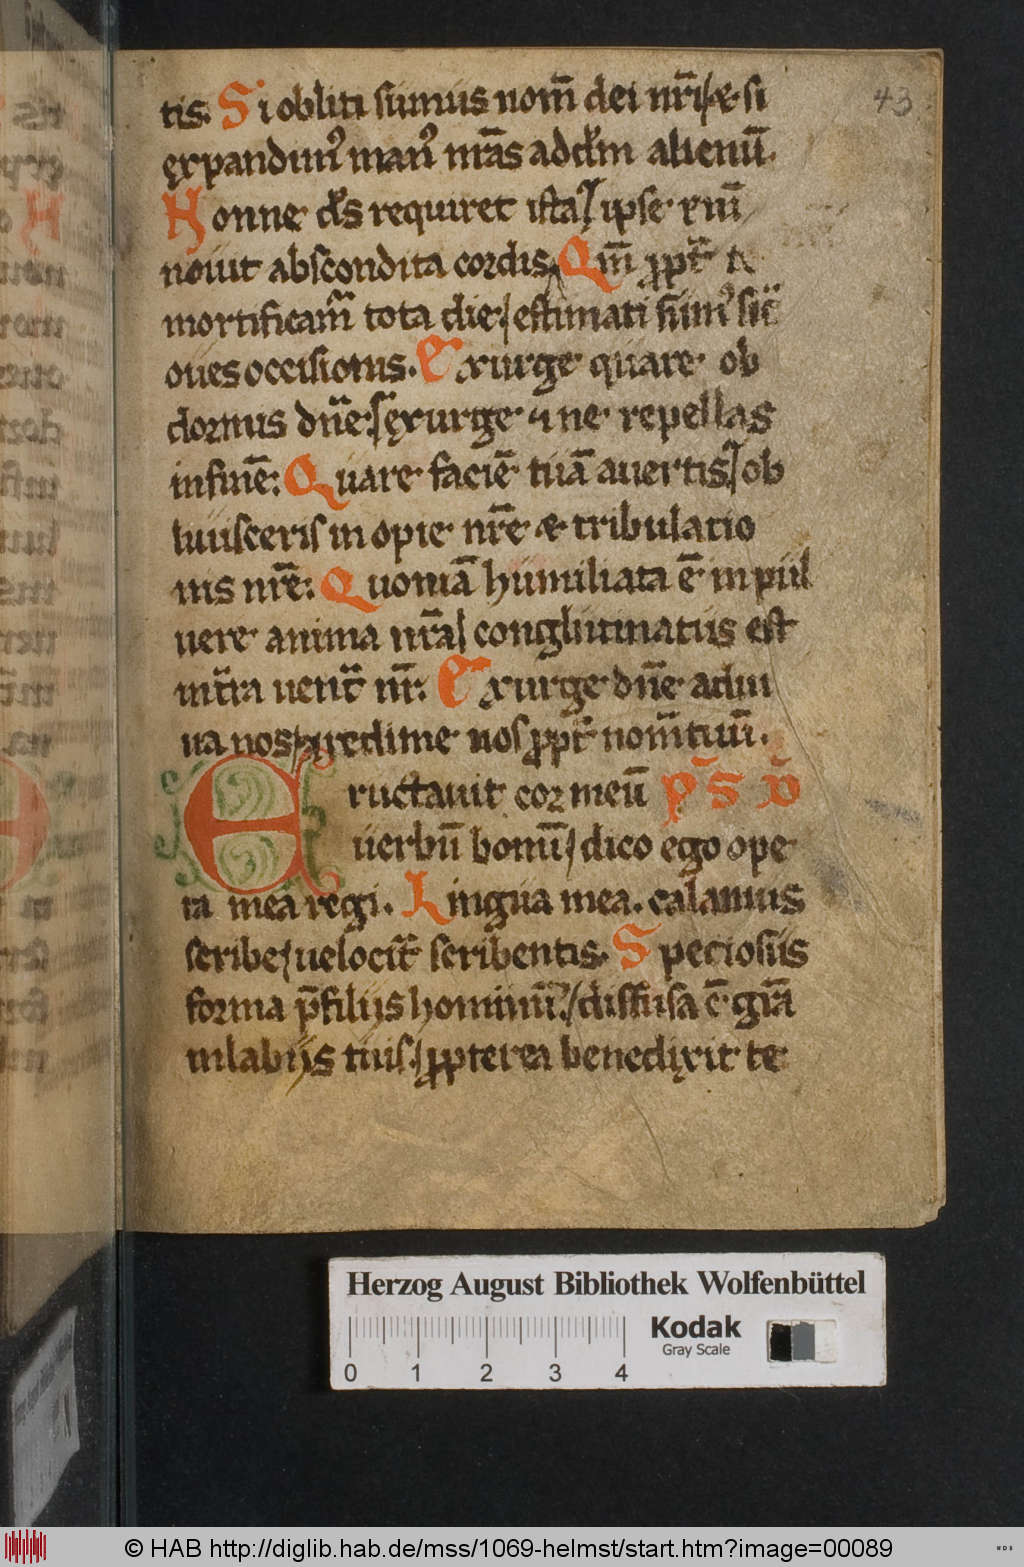 43
tis. Si obliti sumus nom̄ dei nr̄i / & si
expandim᷒ man᷒ nr̄as ad dm̄ alienū.
Nonne ds̄ requiret ista / ipse eni᷉
nouit abscondita cordis. Qm̄ ꝓpt᷑
mortificam᷑ tota die / estimati sum᷒ sic᷑
oues occisionis. Exurge quare ob
dormis dn̄e / exurge ⁊ ne repellas
infinē. Quare faciē tuā auertis / ob
liuisceris inopie nr̄e & tribulatio
nis nr̄e. Quoniā humiliata ē inpul
uere anima nr̄a / conglutinatus est
int᷑ra uent᷑ nr̄. Exurge dn̄e adiu
ua nos / ⁊ redime nos ꝓpt᷑ nom̄ tuū.
Eructauit cor meū ps̄ d̄
uerbū bonū / dico ego ope
ra mea regi. Lingua mea. calamus
scribe / uelocit᷑ scribentis. Speciosus
forma p̄ filijs hominū / diffusa ē gr̄a
inlabijs tuis / ꝓpterea benedixit te
Herzog August Bibliothek Wolfenbüttel
0 1 2 3 4
Kodak
Gray Scale
© HAB http://diglib.hab.de/mss/1069-helmst/start.htm?image=00089